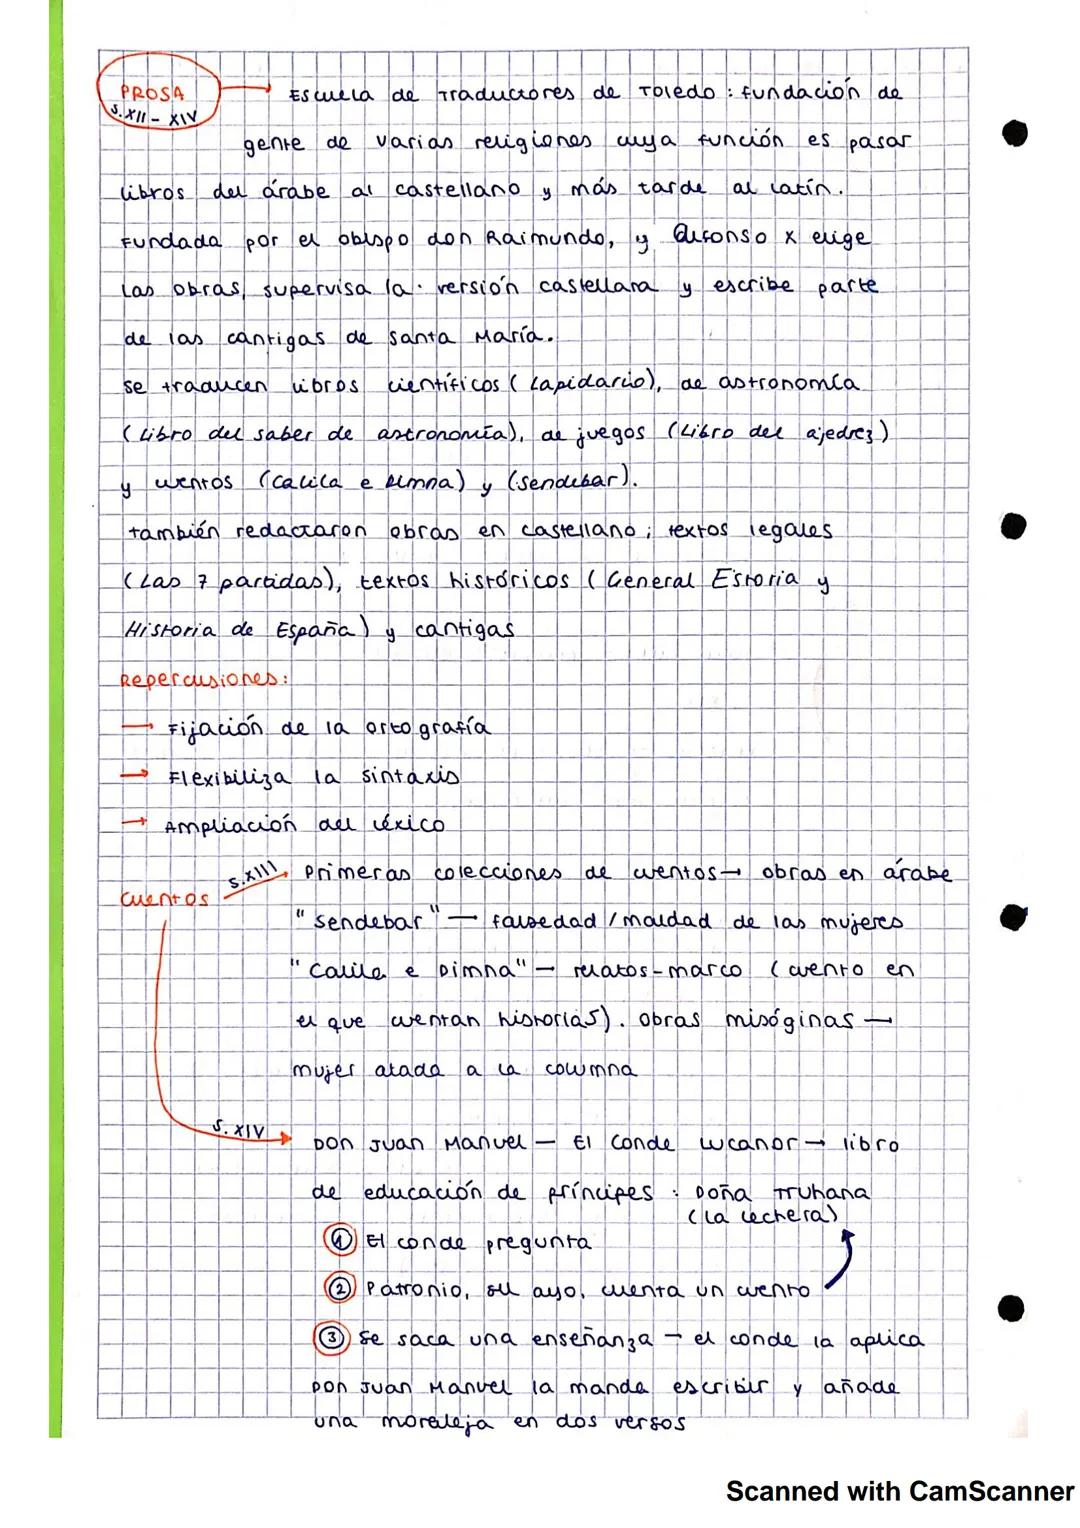 PROSA → Escuela de Traductores de Toledo: fundación de
S.XII - XIV
gente de varias religiones cuya función es pasar
libros del árabe al castellano y más tarde al latín.
Fundada por el obispo don Raimundo, y Alfonso X elige
las obras, supervisa la versión castellana y escribe parte
de las cantigas de Santa María.
se traducen libros científicos (Lapidario), de astronomía
(Libro del saber de astronomía), de juegos (Libro del ajedrez)
y cuentos (Calila e Dimna) y (Sendebar).
también redactaron obras en castellano; textos legales
(Las 7 partidas), textos históricos (General Estoria y
Historia de España) y cantigas
Repercusiones:
→ Fijación de la ortografía
→ Flexibiliza la sintaxis
→ Ampliación del léxico
Cuentos S.XIII → Primeras colecciones de cuentos → obras en árabe
"Sendebar" — falsedad / maldad de las mujeres
"Calila e Dimna" — relatos-marco (cuento en
el que cuentan historias). Obras misóginas —
mujer atada a la columna
S. XIV → DON Juan Manuel — El Conde Lucanor → libro
de educación de príncipes : Doña Truhana
(la lechera)
① El conde pregunta
② Patronio, su ayo, cuenta un cuento
③ Se saca una enseñanza → el conde la aplica
Don Juan Manuel la manda escribir y añade
una moraleja en dos versos
Scanned with CamScanner